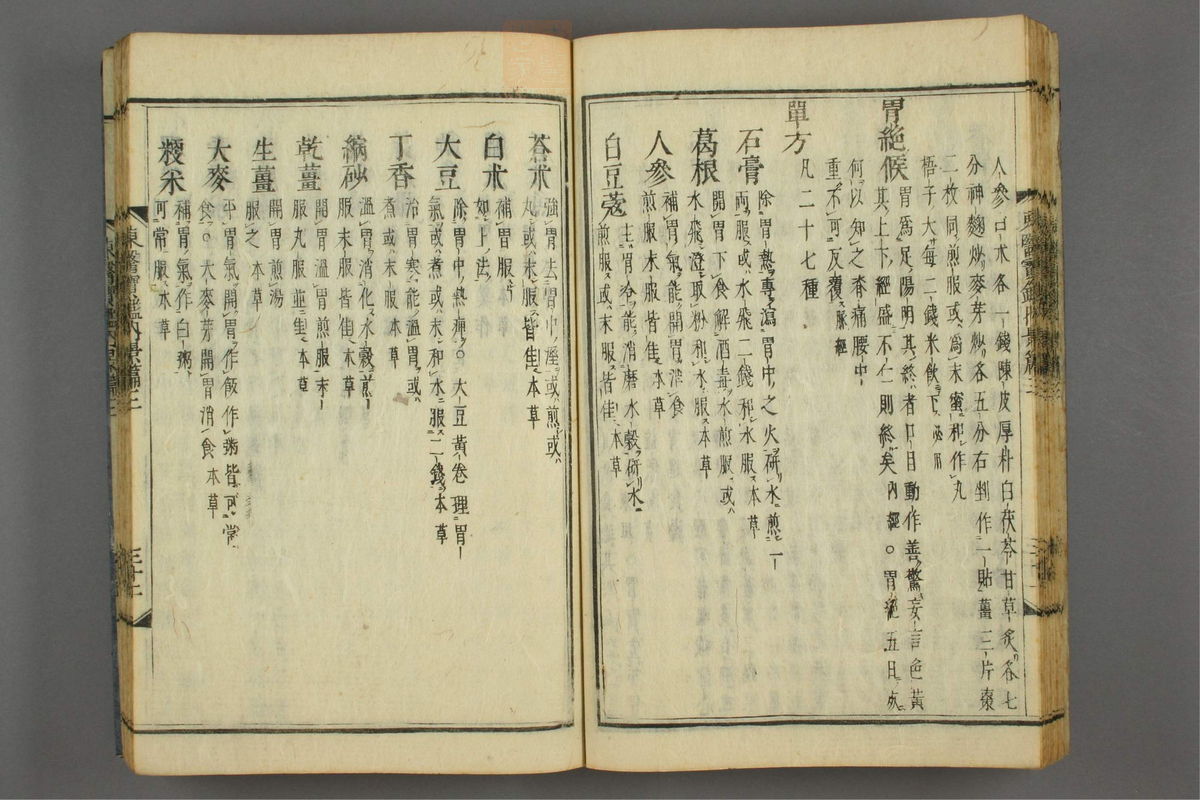 人參白朮各一錢陳皮厚朴白茯苓甘草炙各七
分神麴炒麥芽炒各五分右剉作一貼薑三片棗
二枚同煎服或爲末蜜和作丸
梧子大每二錢米飮下必用
胃絶候
胃爲足陽明其終者口目動作善驚妄言色黃
其上下經盛不仁則終矣內經○胃絶五日死
何以知之脊痛腰中
重不可反覆脉經
單方
凡二十七種
石膏
除胃熱專瀉胃中之火硏水煎一
兩服或水飛二錢和水服本草
葛根
開胃下食解酒毒水煎服或
水飛澄取粉和水服本草
人參
補胃氣能開胃消食
煎服末服皆佳本草
白豆蔲
主胃冷能消磨水穀硏水
煎服或末服皆佳本草
蒼朮
強胃去胃中濕或煎或
丸或末服皆佳本草
白朮
補胃服
如上法
大豆
除胃中熱痺○大豆黃卷理胃
氣或煮或末和水服二錢本草
丁香
冷胃寒能溫胃或
煮或末服本草
硇砂
溫胃消化水穀煎
服末服皆佳本草
乾薑
開胃溫胃煎服末
服丸服並佳本草
生薑
開胃煎湯
服之本草
大麥
平胃氣開胃作飯作粥皆可常
食○大麥芽開胃消食本草
糯米
補胃氣作白粥
可常服本草
東醫寶鑑內景篇三
東醫寶鑑內景篇三
三十二